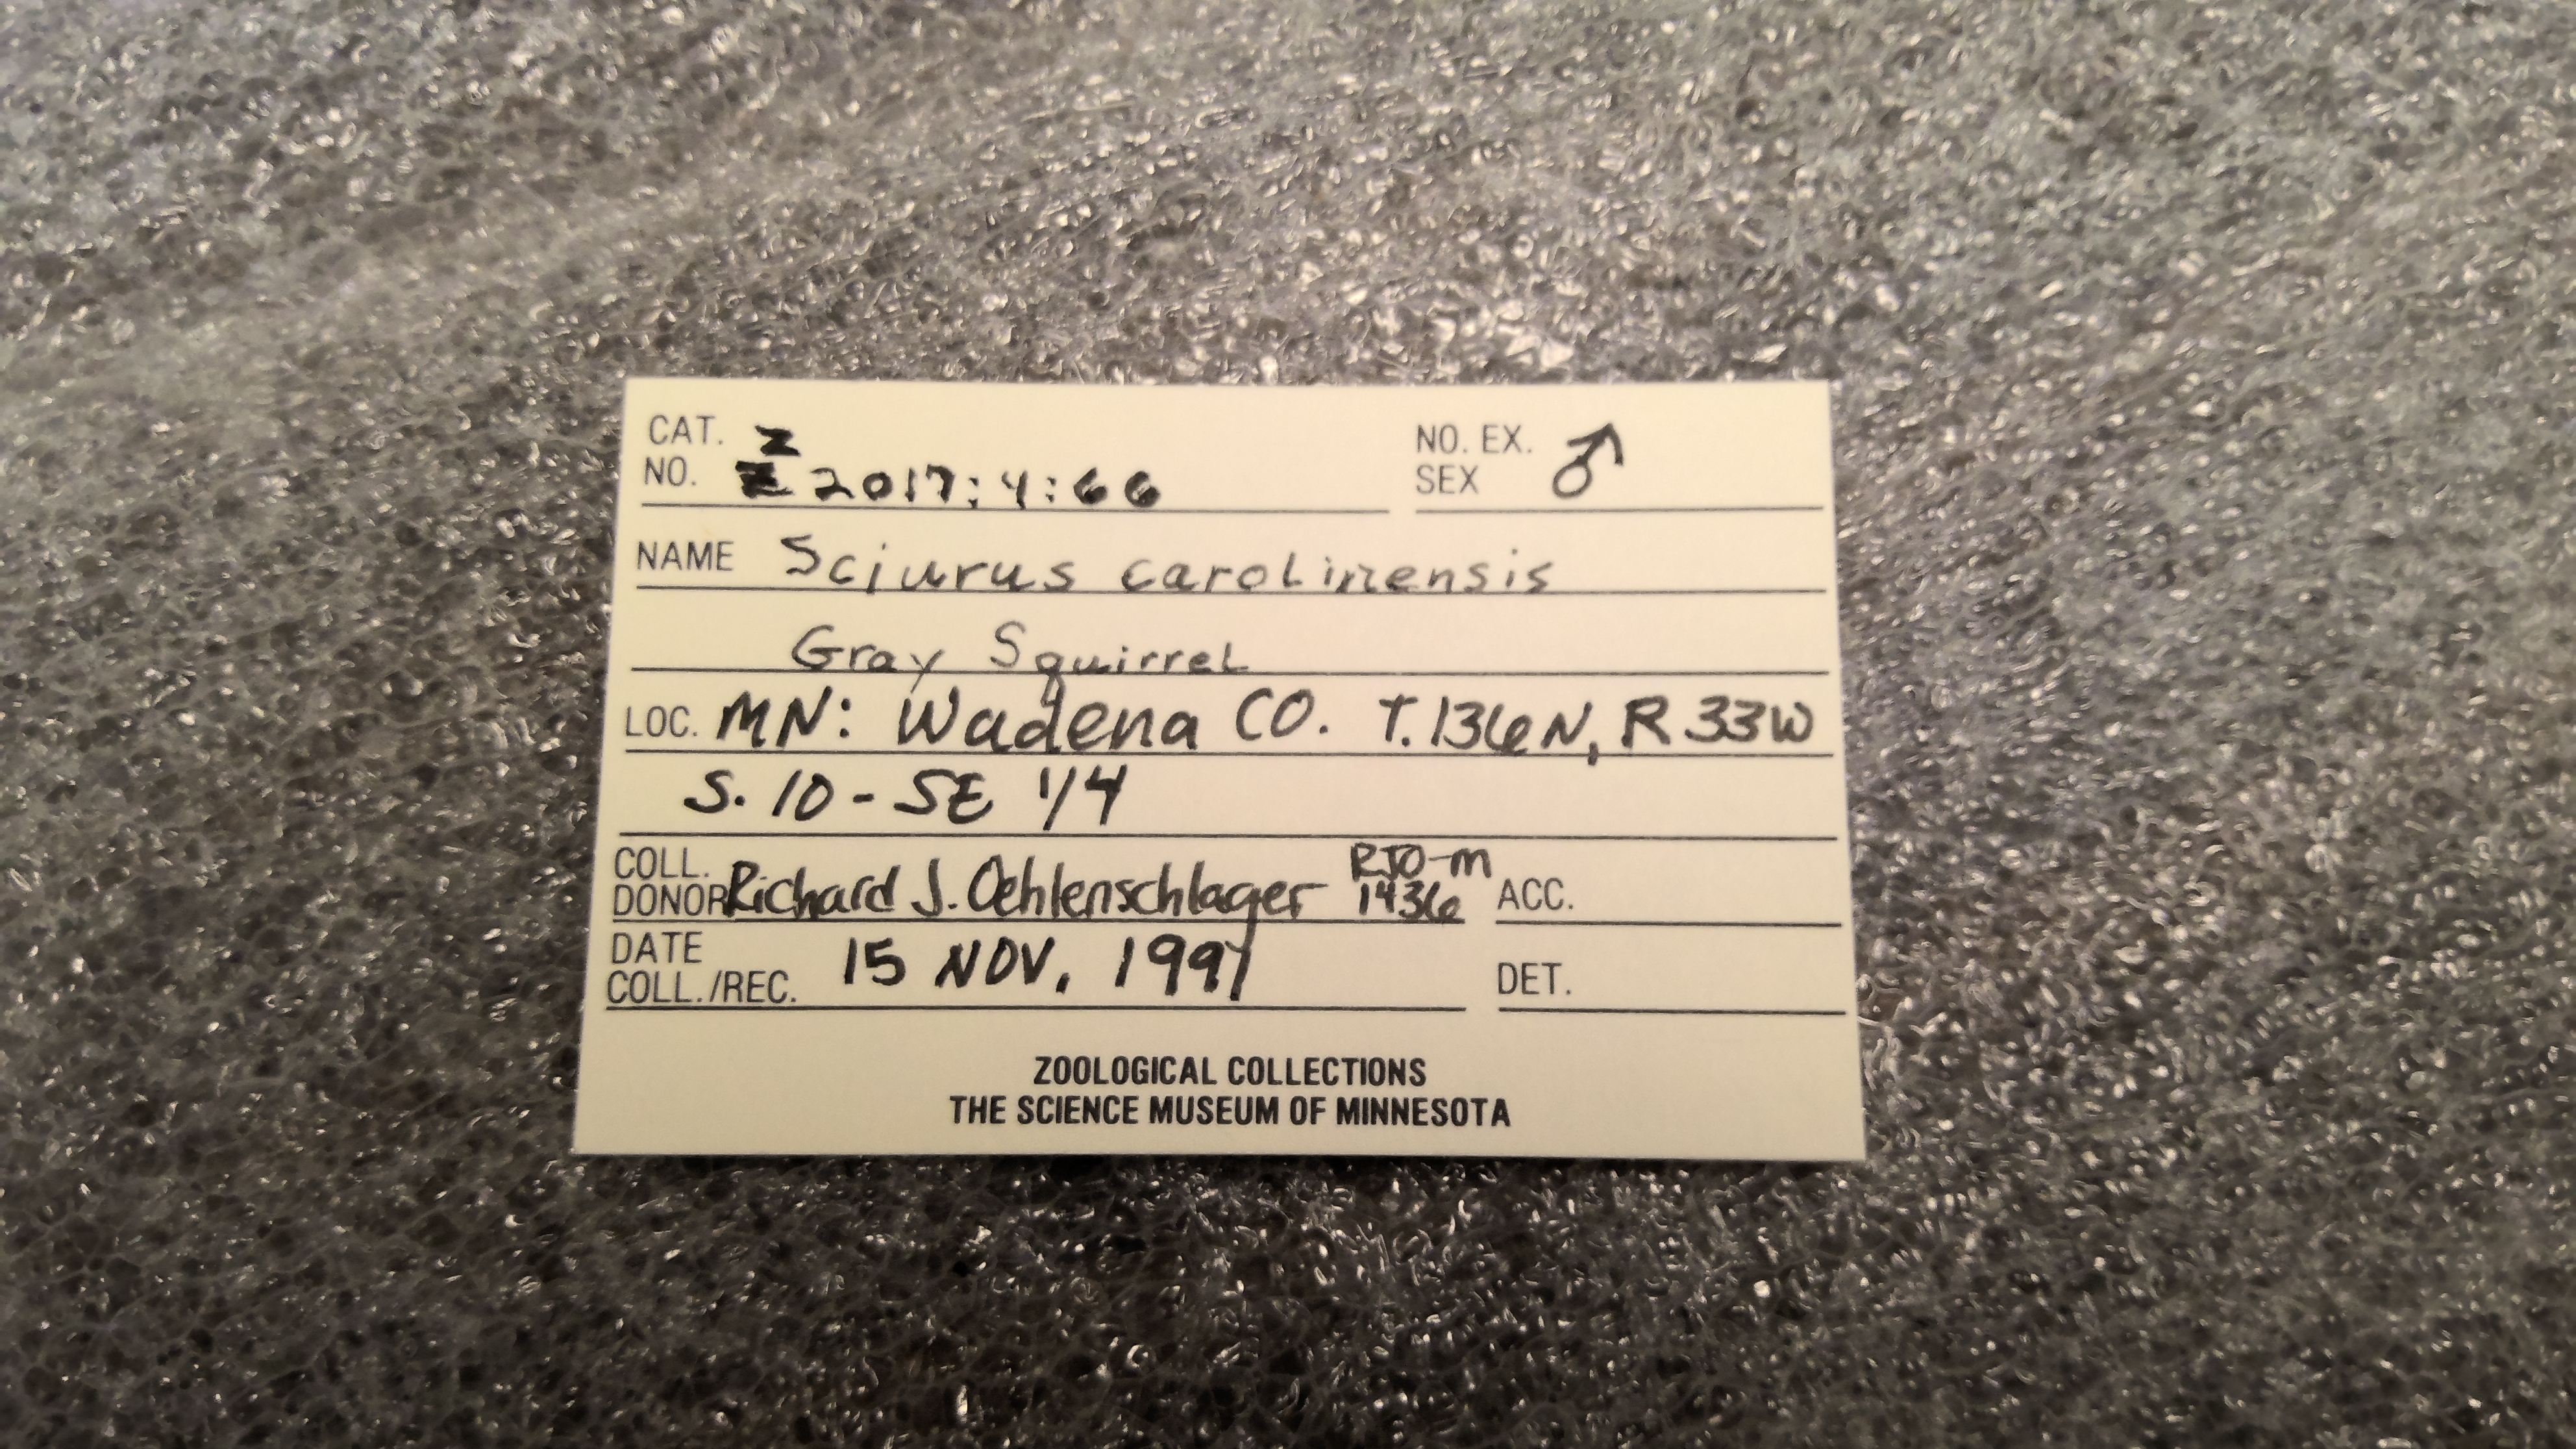 CAT. Z
NO. Z 2017:4:66
NO. EX.
SEX ♂
NAME Sciurus carolinensis
Gray Squirrel
LOC. MN: Wadena CO. T.136N, R33W
S. 10 - SE 1/4
COLL. RJO-M
DONOR Richard J. Oehlenschlager 1436 ACC.
DATE
COLL./REC. 15 NOV, 1997 DET.
ZOOLOGICAL COLLECTIONS
THE SCIENCE MUSEUM OF MINNESOTA